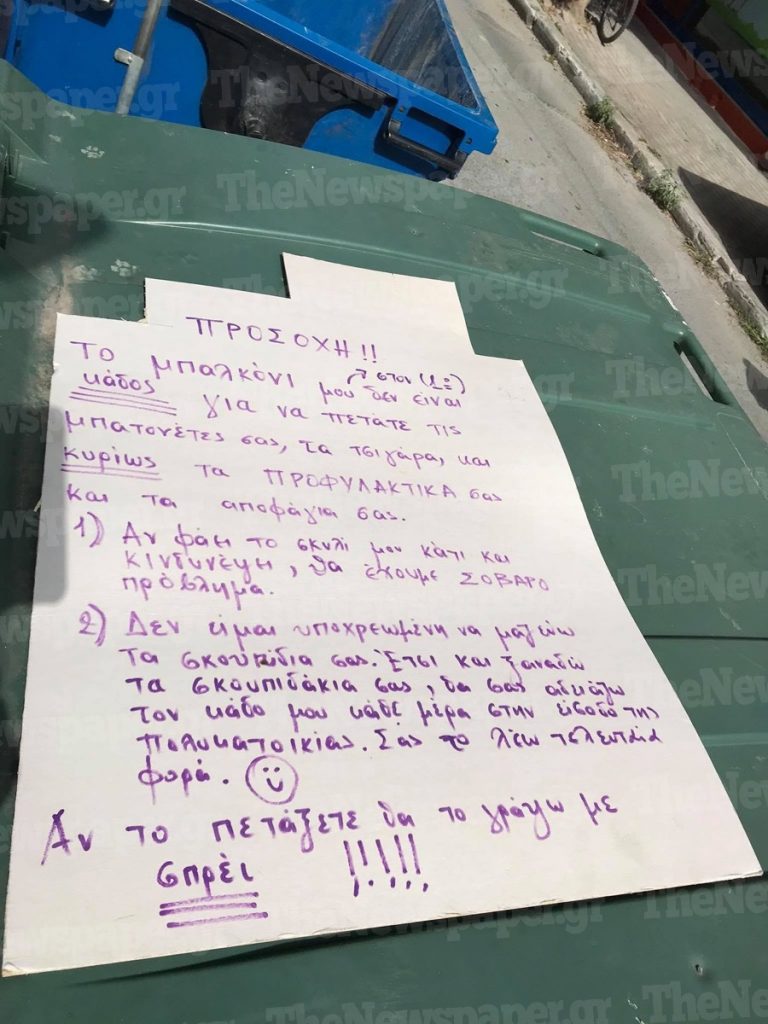 ΠΡΟΣΟΧΗ!!
Το μπαλκόνι μου δεν είναι
→ στον (1ο)
κάδος για να πετάτε τις
μπατονέτες σας, τα τσιγάρα, και
κυρίως τα ΠΡΟΦΥΛΑΚΤΙΚΑ σας
και τα αποφάγια σας.
1) Αν φάει το σκυλί μου κάτι και
κινδυνέψη, θα έχουμε ΣΟΒΑΡΟ
πρόβλημα.
2) Δεν είμαι υποχρεωμένη να μαζεύω
τα σκουπίδια σας. Έτσι και ξαναδώ
τα σκουπιδάκια σας, θα σας αδειάζω
τον κάδο μου κάθε μέρα στην είσοδο της
πολυκατοικίας. Σας το λέω τελευταία
φορά.
Αν το πετάξετε θα το γράψω με
σπρέι !!!!!
TheNewspaper.gr